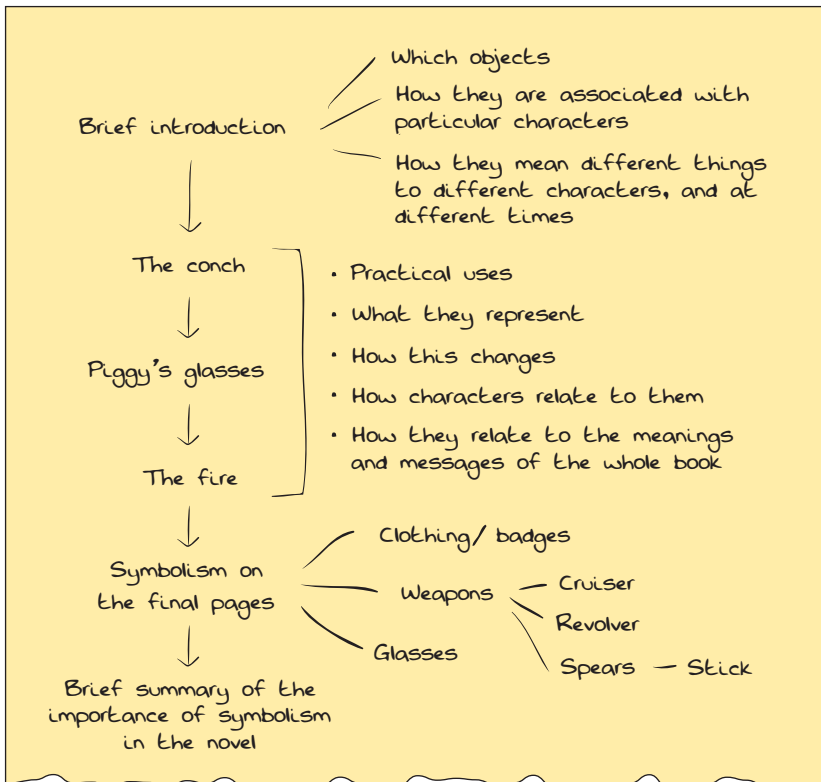 Brief introduction
Which objects
How they are associated with
particular characters
How they mean different things
to different characters, and at
different times
The conch
Piggy's glasses
The fire
• Practical uses
• What they represent
• How this changes
• How characters relate to them
• How they relate to the meanings
and messages of the whole book
Symbolism on
the final pages
Clothing/ badges
Weapons
Cruiser
Revolver
Spears – Stick
Glasses
Brief summary of the
importance of symbolism
in the novel